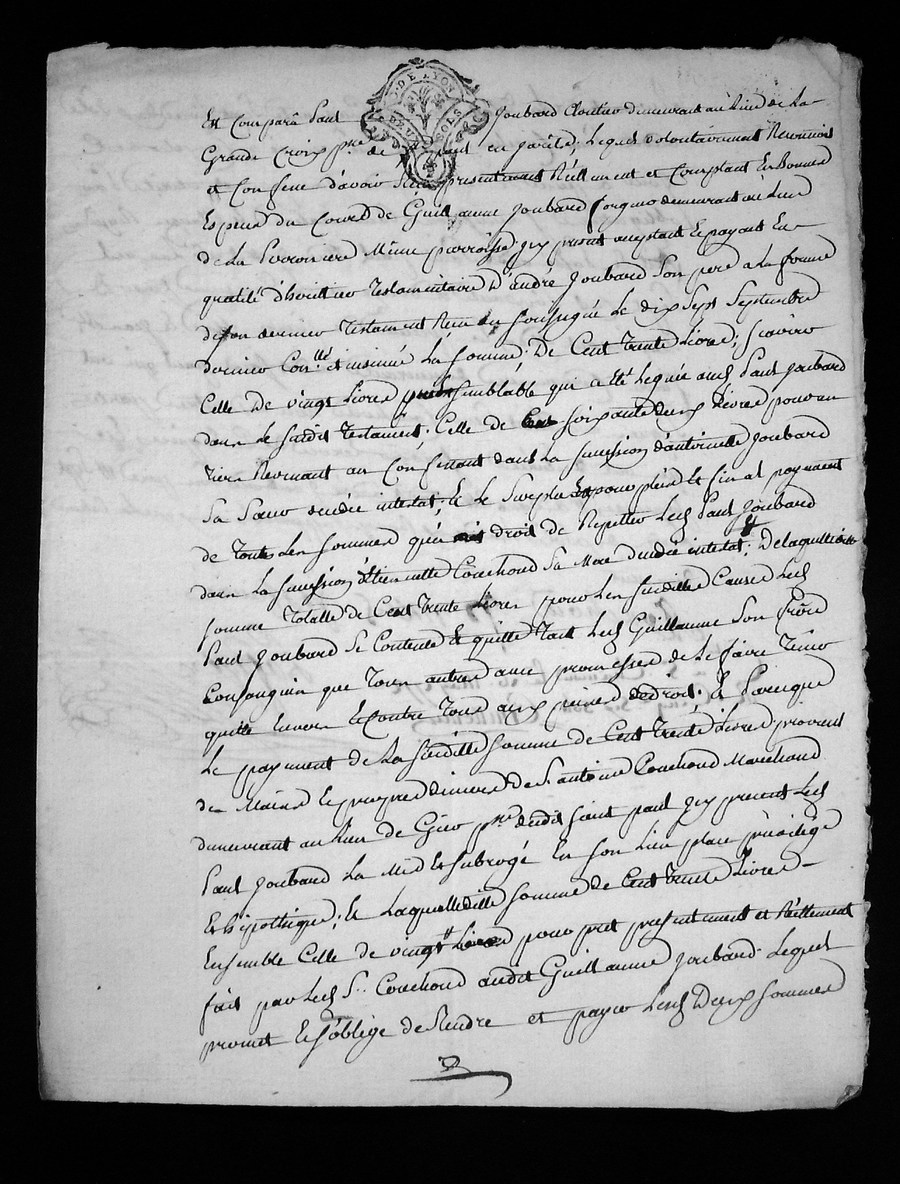 G. DE LYON
DEUX SOLS
Est Comparû Paul Joubard Cloutier demeurant au Lieu de La
Grande Croix psse de St paul en jarêts; Lequel volontairement Reconnoit
et Confesse d'avoir Reçu présentement Réellement et Comptant En Bonnes
Especes du Cours de Guillaume Joubard forgeur demeurant au Lieu
de La Perroniere Même parroisse, icy présent acceptant Et payant En
qualité d'heritier Testamentaire d'andré Joubard Son pere a La forme
de son dernier Testament Reçu du Soussigné Le dix Sept Septembre
dernier Conllé et insinué La Somme De Cent Trente Livres; Scavoir
Celle De vingt Livres Semblable qui a eté Leguée aud Paul Joubard
dans Le Susdit Testament; Celle de Soixante deux Livres pour un
tiers Revenant au Confessant dans La Succession d'antoinette Joubard
Sa Sœur decedée intestat; Et Le Surplus Et pour plein Et final payement
de Toutes Les Sommes qu'en droit de Repetter Led Paul Joubard
dans La Succession d'Etiennette Couchoud Sa Mere decedée intestat; De laquelle
Somme Totalle de Cent Trente Livres pour Les Susdittes Causes Led
Paul Joubard Se Contente Et quitte Tant Led Guillaume Son frère
Consanguin que Tous autres avec promesses de Le faire Tenir
quitte Envers Et Contre Tous aux peines de droit; Et Parceque
Le payement de La Susditte Somme de Cent Trente Livres provient
des Mains Et propres deniers de Sr antoine Couchoud Marchand
demeurant au Lieu de Gier psse dudit Saint paul icy present Led
Paul Joubard La Mis Et Subrogé En Son Lieu place privilége
Et hipothéque; Et Laquelleditte Somme de Cent Trente Livres
Ensemble Celle de vingt Livres pour pret presentement et Réellement
fait par Led Sr Couchoud audit Guillaume Joubard. Lequel
promet Et S'oblige de Rendre et payer Lesd Deux Sommes